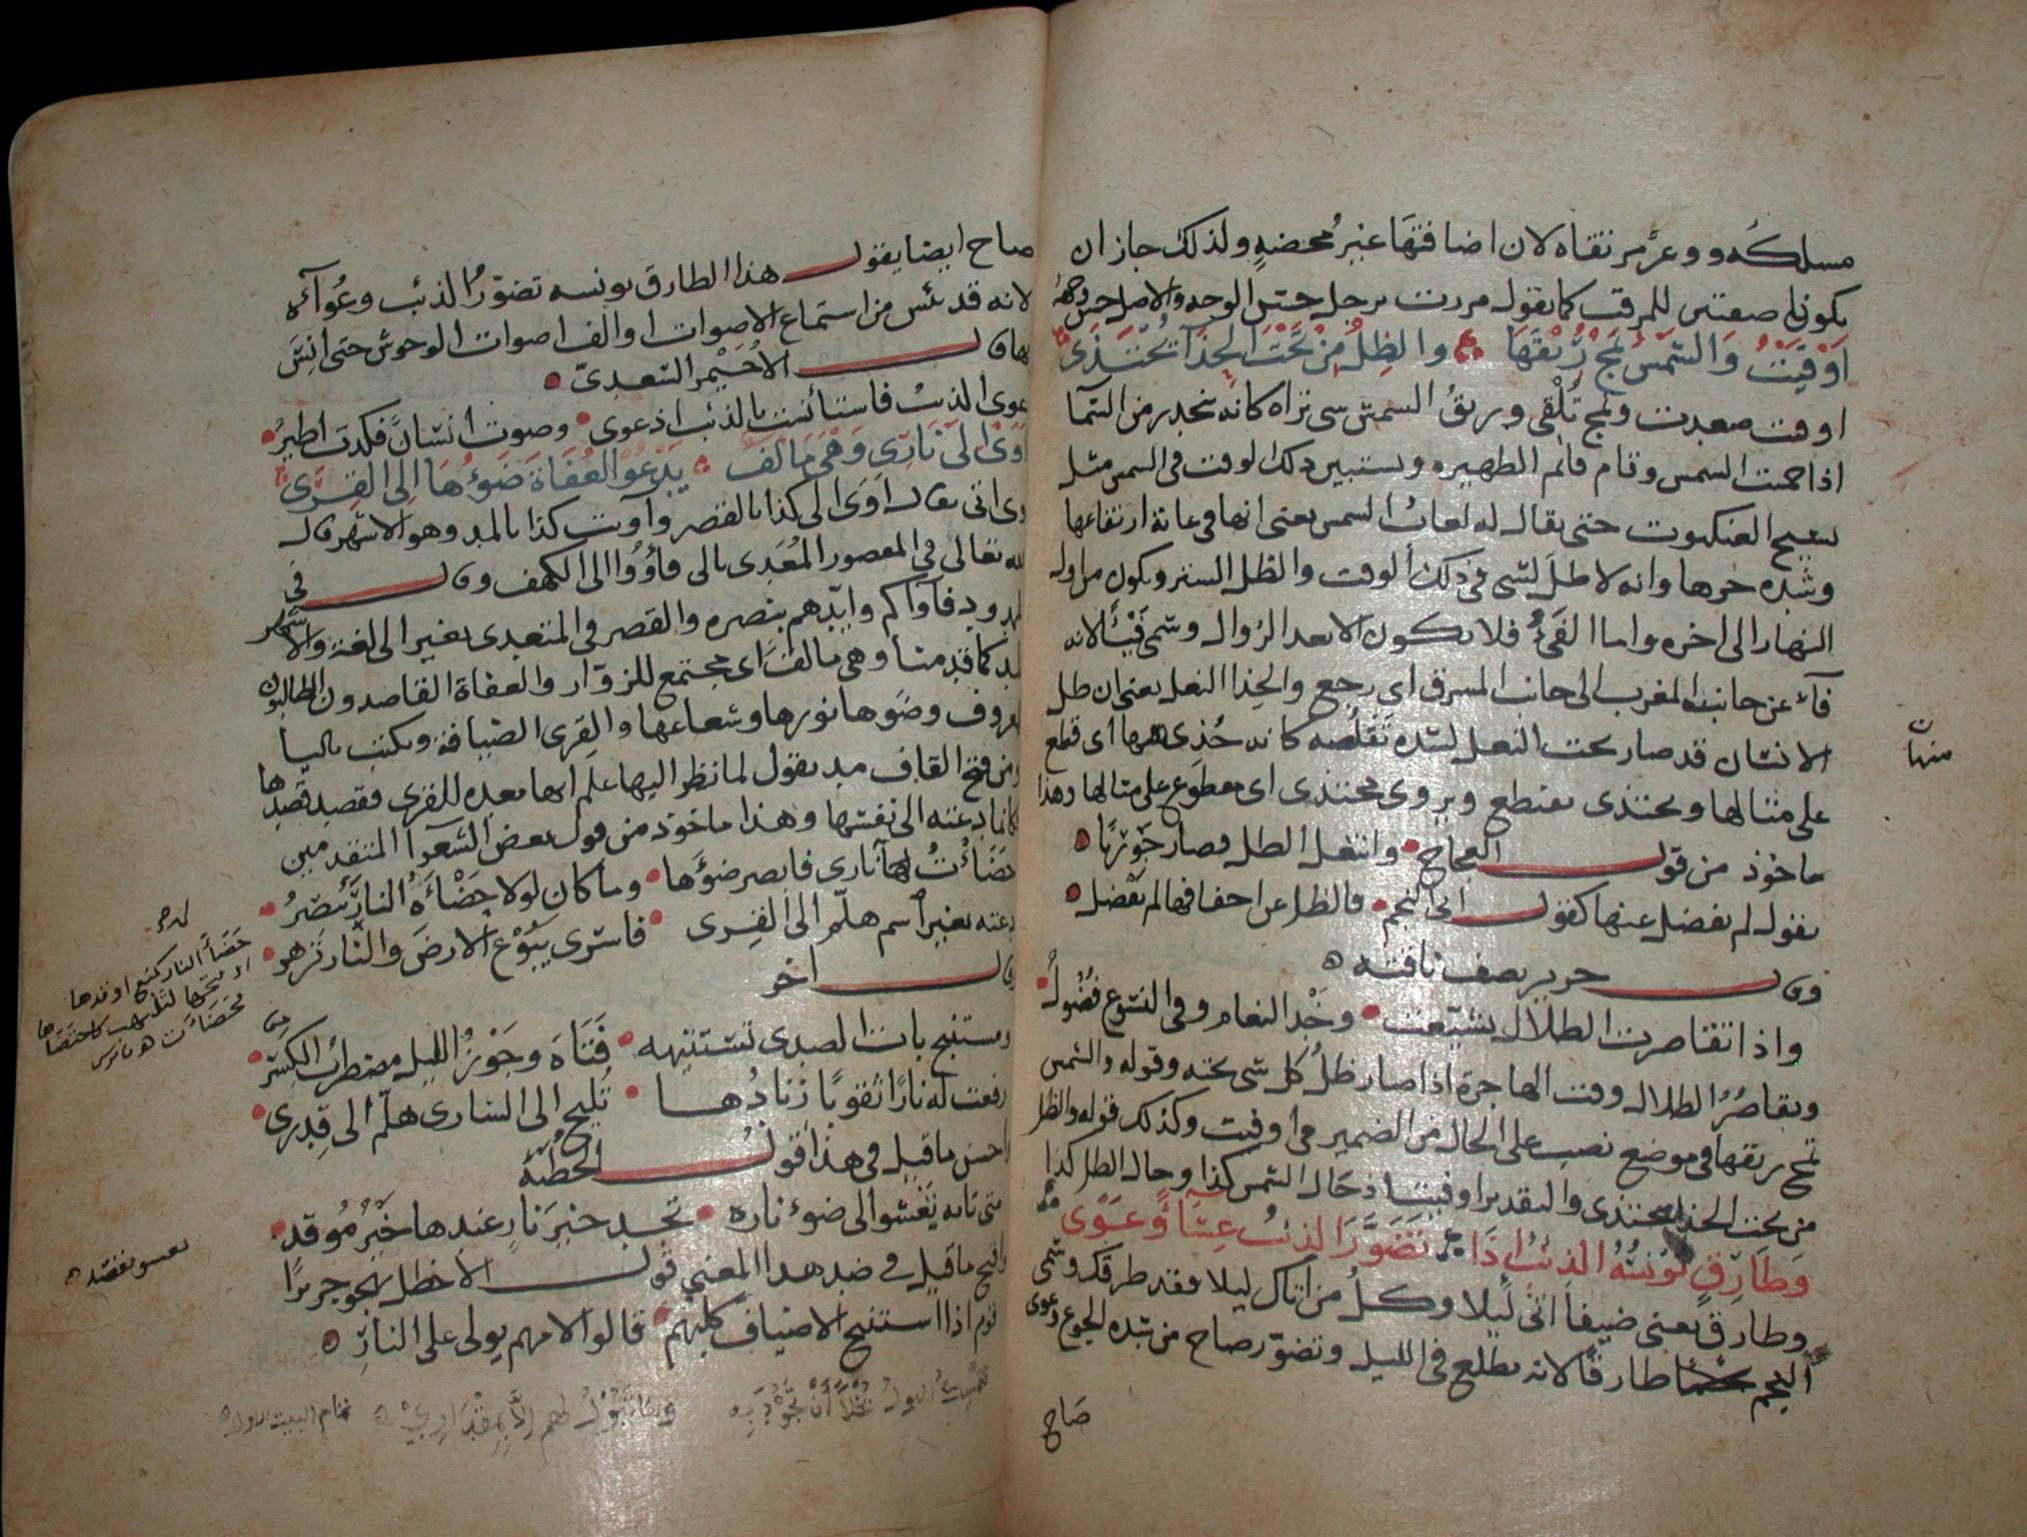 مسلكه ووعر مرتقاه لان اضافتها غير محضة ولذلك جاز ان
يكونا صفتين للمرقب كما يقول مررت برجل حسن الوجه والاصل حسن وجهه
اوفيت والشمس تمج ريقها والظل من تحت الحذآء محتذى
اوفيت صعدت وتمج تلقى وريق الشمس شى تراه كانه ينحدر من السمآ
اذا حميت الشمس وقام قائم الظهيره ويستبين ذلك الوقت فى الشمس مثل
نسيج العنكبوت حتى يقال له لعاب الشمس يعنى انها فى غاية ارتفاعها
وشده حرها وانه لا ظل لشى فى ذلك الوقت والظل الستر ويكون من اول
النهار الى اخره واما الفىء فلا يكون الا بعد الزوال وسمى فيئا لانه
فآء عن جانب المغرب الى جانب المشرق اى رجع والحذا النعل يعنى ان ظل
الانسان قد صار تحت النعل لشده تقلصه كانه حذى منها اى قطع
منهاٮ
على مثالها ويحتذى يقتطع ويروى محتذى اى مقطوع على مثالها وهذا
ماخوذ من قول العجاج وانتعل الظل فصار جوربا
يقول لم يفضل عنها كقول ابى النجم فالظل عن اخفافها لم يفضل
وقال جرير يصف ناقته
واذا تقاصرت الظلال تشنعت وخد النعام وفى النسوع فضول
وتقاصر الظلال وقت الهاجرة اذا صار ظل كل شى تحته وقوله والشمس
تمج ريقها فى موضع نصب على الحال من الضمير فى اوفيت وكذلك قوله والظل
من تحت الحذا يحتذى والتقدير اوفيتها اذ حال الشمس كذا وحال الظل كذا
وطارق يونسه الذئب اذا تضور الذئب عشآء وعوى
وطارق يعنى ضيفا اتى ليلا وكل من اتاك ليلا فقد طرقك وسمى
النجم طارقا لانه يطلع فى الليل وتضور صاح من شده الجوع وعوى
صاح
صاح ايضا يقول هذا الطارق يونسه تضور الذئب وعوآئه
لانه قد يئس من استماع الاصوات والف اصوات الوحوش حتى انس
بها قال الاحيمر السعدى
عوى الذئب فاستأنست بالذئب اذ عوى وصوت انسان فكدت اطير
اوى الى نارى وهى مالف يدعو العفاة ضوءها الى القرى
يقال اوى الى كذا بالقصر وآويت كذا بالمد وهو الاشهر قال
الله تعالى فى المقصور المعدى بالى فأووا الى الكهف وقال فى
الممدود فآواكم وايدهم بنصره والقصر فى المتعدى بغير الى لغة والاشهر
المد كما قدمنا وهى مالف اى مجتمع للزوار والعفاة القاصدون الطالبون
المعروف وضوها نورها وشعاعها والقرى الضيافة ويكتب باليا
ومن فتح القاف مد يقول لما نظر اليها علم انها معده للقرى فقصد قصدها
كانما دعته الى نفسها وهذا ماخوذ من قول بعض الشعرآ المتقدمين
حضأت لها نارى فابصر ضوءها وما كان لولا حضأة النار يبصر
دعته بغير اسم هلم الى القرى فاسرى يبوع الارض والنار تزهر
وقال اخر
ومستنبح بات الصدى يستتيهه فتاه وجوز الليل مضطرب الكسر
رفعت له نارا ثقوبا زنادها تليح الى السارى هلم الى قدرى
احسن ما قيل فى هذا قول الحطئة
متى تاته تعشو الى ضوء ناره تجد خير نار عندها خير موقد
واقبح ما قيل فى ضد هذا المعنى قول الاخطل يهجو جريرا
قوم اذا استنبح الاضياف كلبهم قالوا لامهم بولى على النار
فتمسك البول بخلا أن تجود به وما تبول لهم الا بمقدار
تمام البيت الاول
حضأ النار كمنع اوقدها
او فتحها لتلتهب كاحتضأها
فحضأت هو قاموس
يعشو يقصد